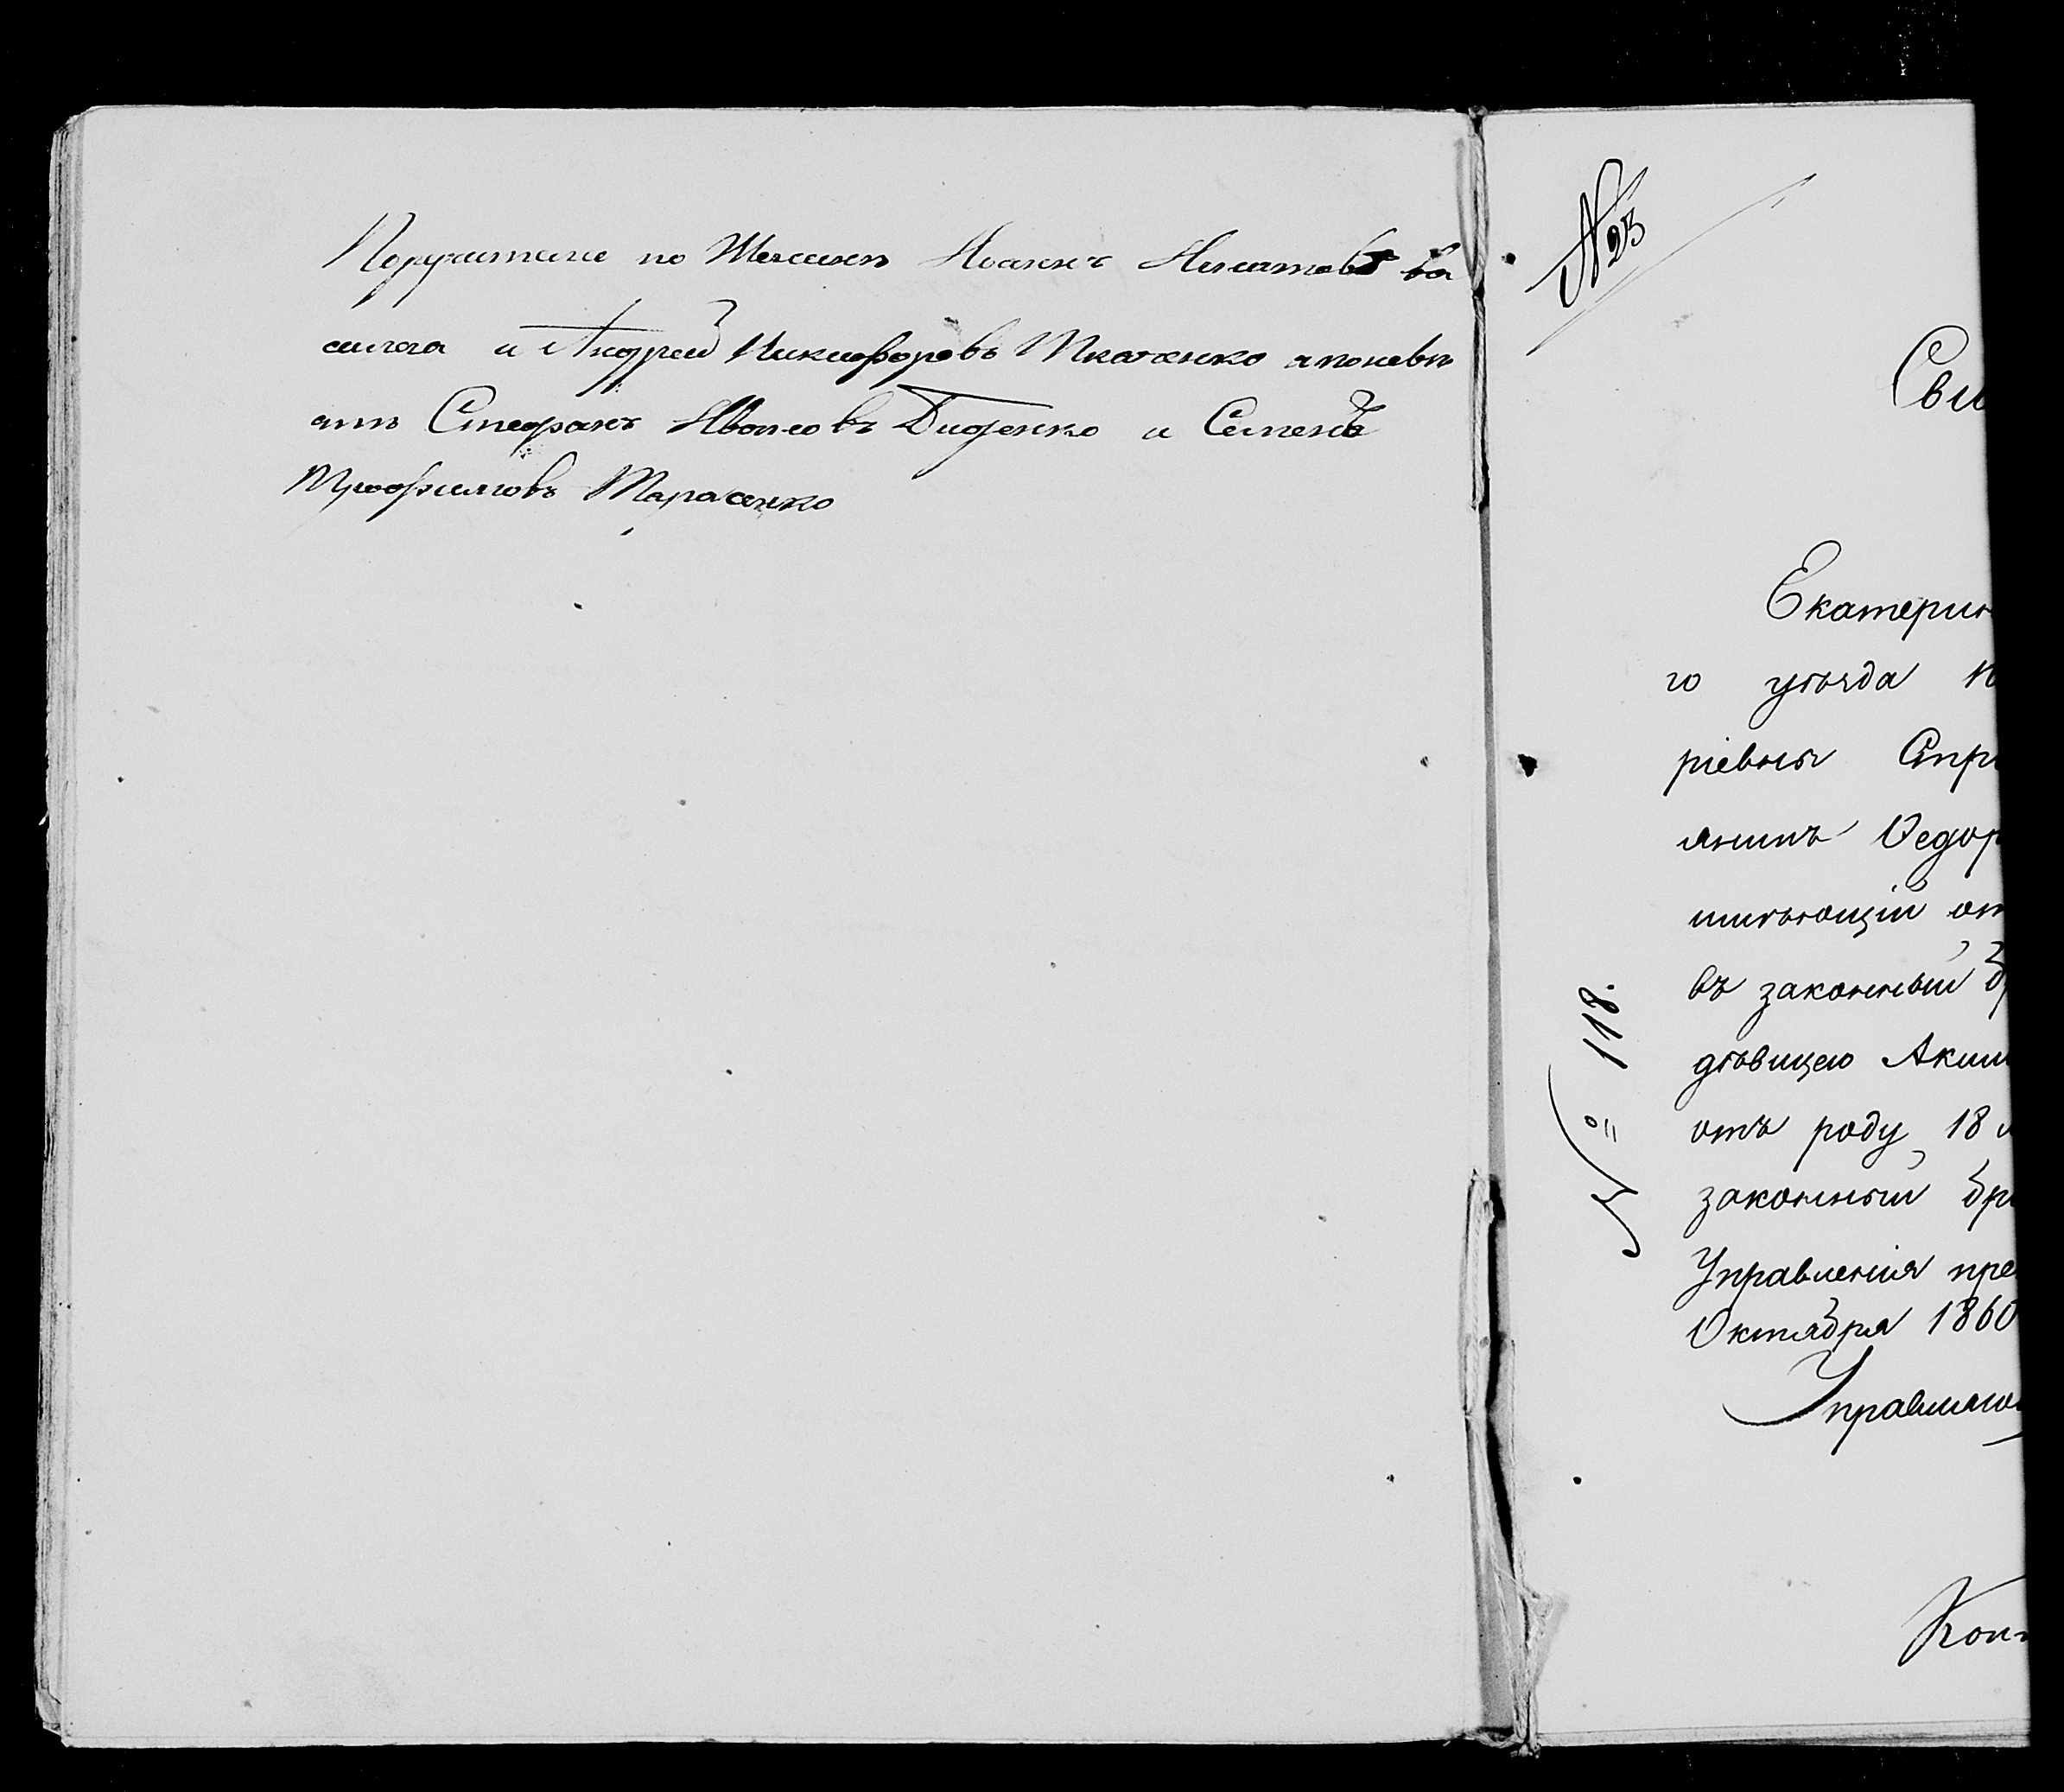 Поручители по Женихѣ Иоаннъ Игнатовъ Ва
силега и Андрей Никифоровъ Ткаченко а по невѣ
стѣ Стефанъ Ивановъ Диденко и Семенъ
Трофимовъ Тарасенко
№ 23
Сви
Екатерин
го уѣзда
ріевны Стри
янинъ Ѳедор
имѣющій от
въ законный бр
дѣвицею Аким
отъ роду 18 л
законный бра
Управленія пре
Октября 1860
Управляющ
№ 118.
Кон